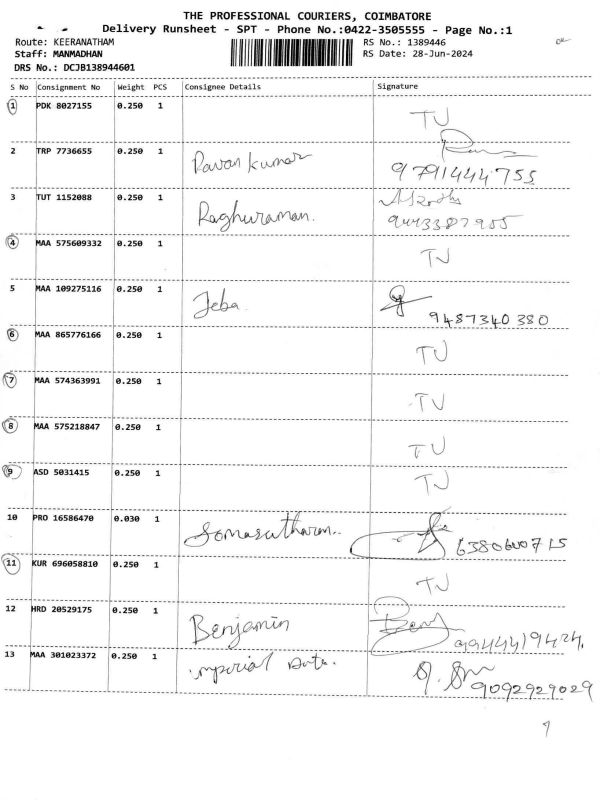 THE PROFESSIONAL COURIERS, COIMBATORE
Delivery Runsheet - SPT - Phone No.:0422-3505555 - Page No.:1
Route: KEERANATHAM
RS No.: 1389446
Staff: MANMADHAN
RS Date: 28-Jun-2024
DRS No.: DCJB138944601
S No Consignment No Weight PCS Consignee Details Signature
1 PDK 8027155 0.250 1 TU
2 TRP 7736655 0.250 1 Pavan Kumar 9791444755
3 TUT 1152088 0.250 1 Raghuraman. 9443387905
4 MAA 575609332 0.250 1 TU
5 MAA 109275116 0.250 1 Jeba 9487340380
6 MAA 865776166 0.250 1 TU
7 MAA 574363991 0.250 1 TU
8 MAA 575218847 0.250 1 TU
9 ASD 5031415 0.250 1 TU
10 PRO 16586470 0.030 1 Somasutharan.. 6380600715
11 KUR 696058810 0.250 1 TU
12 HRD 20529175 0.250 1 Benjamin Benj 9944419424.
13 MAA 301023372 0.250 1 imperial Data. 9092929029